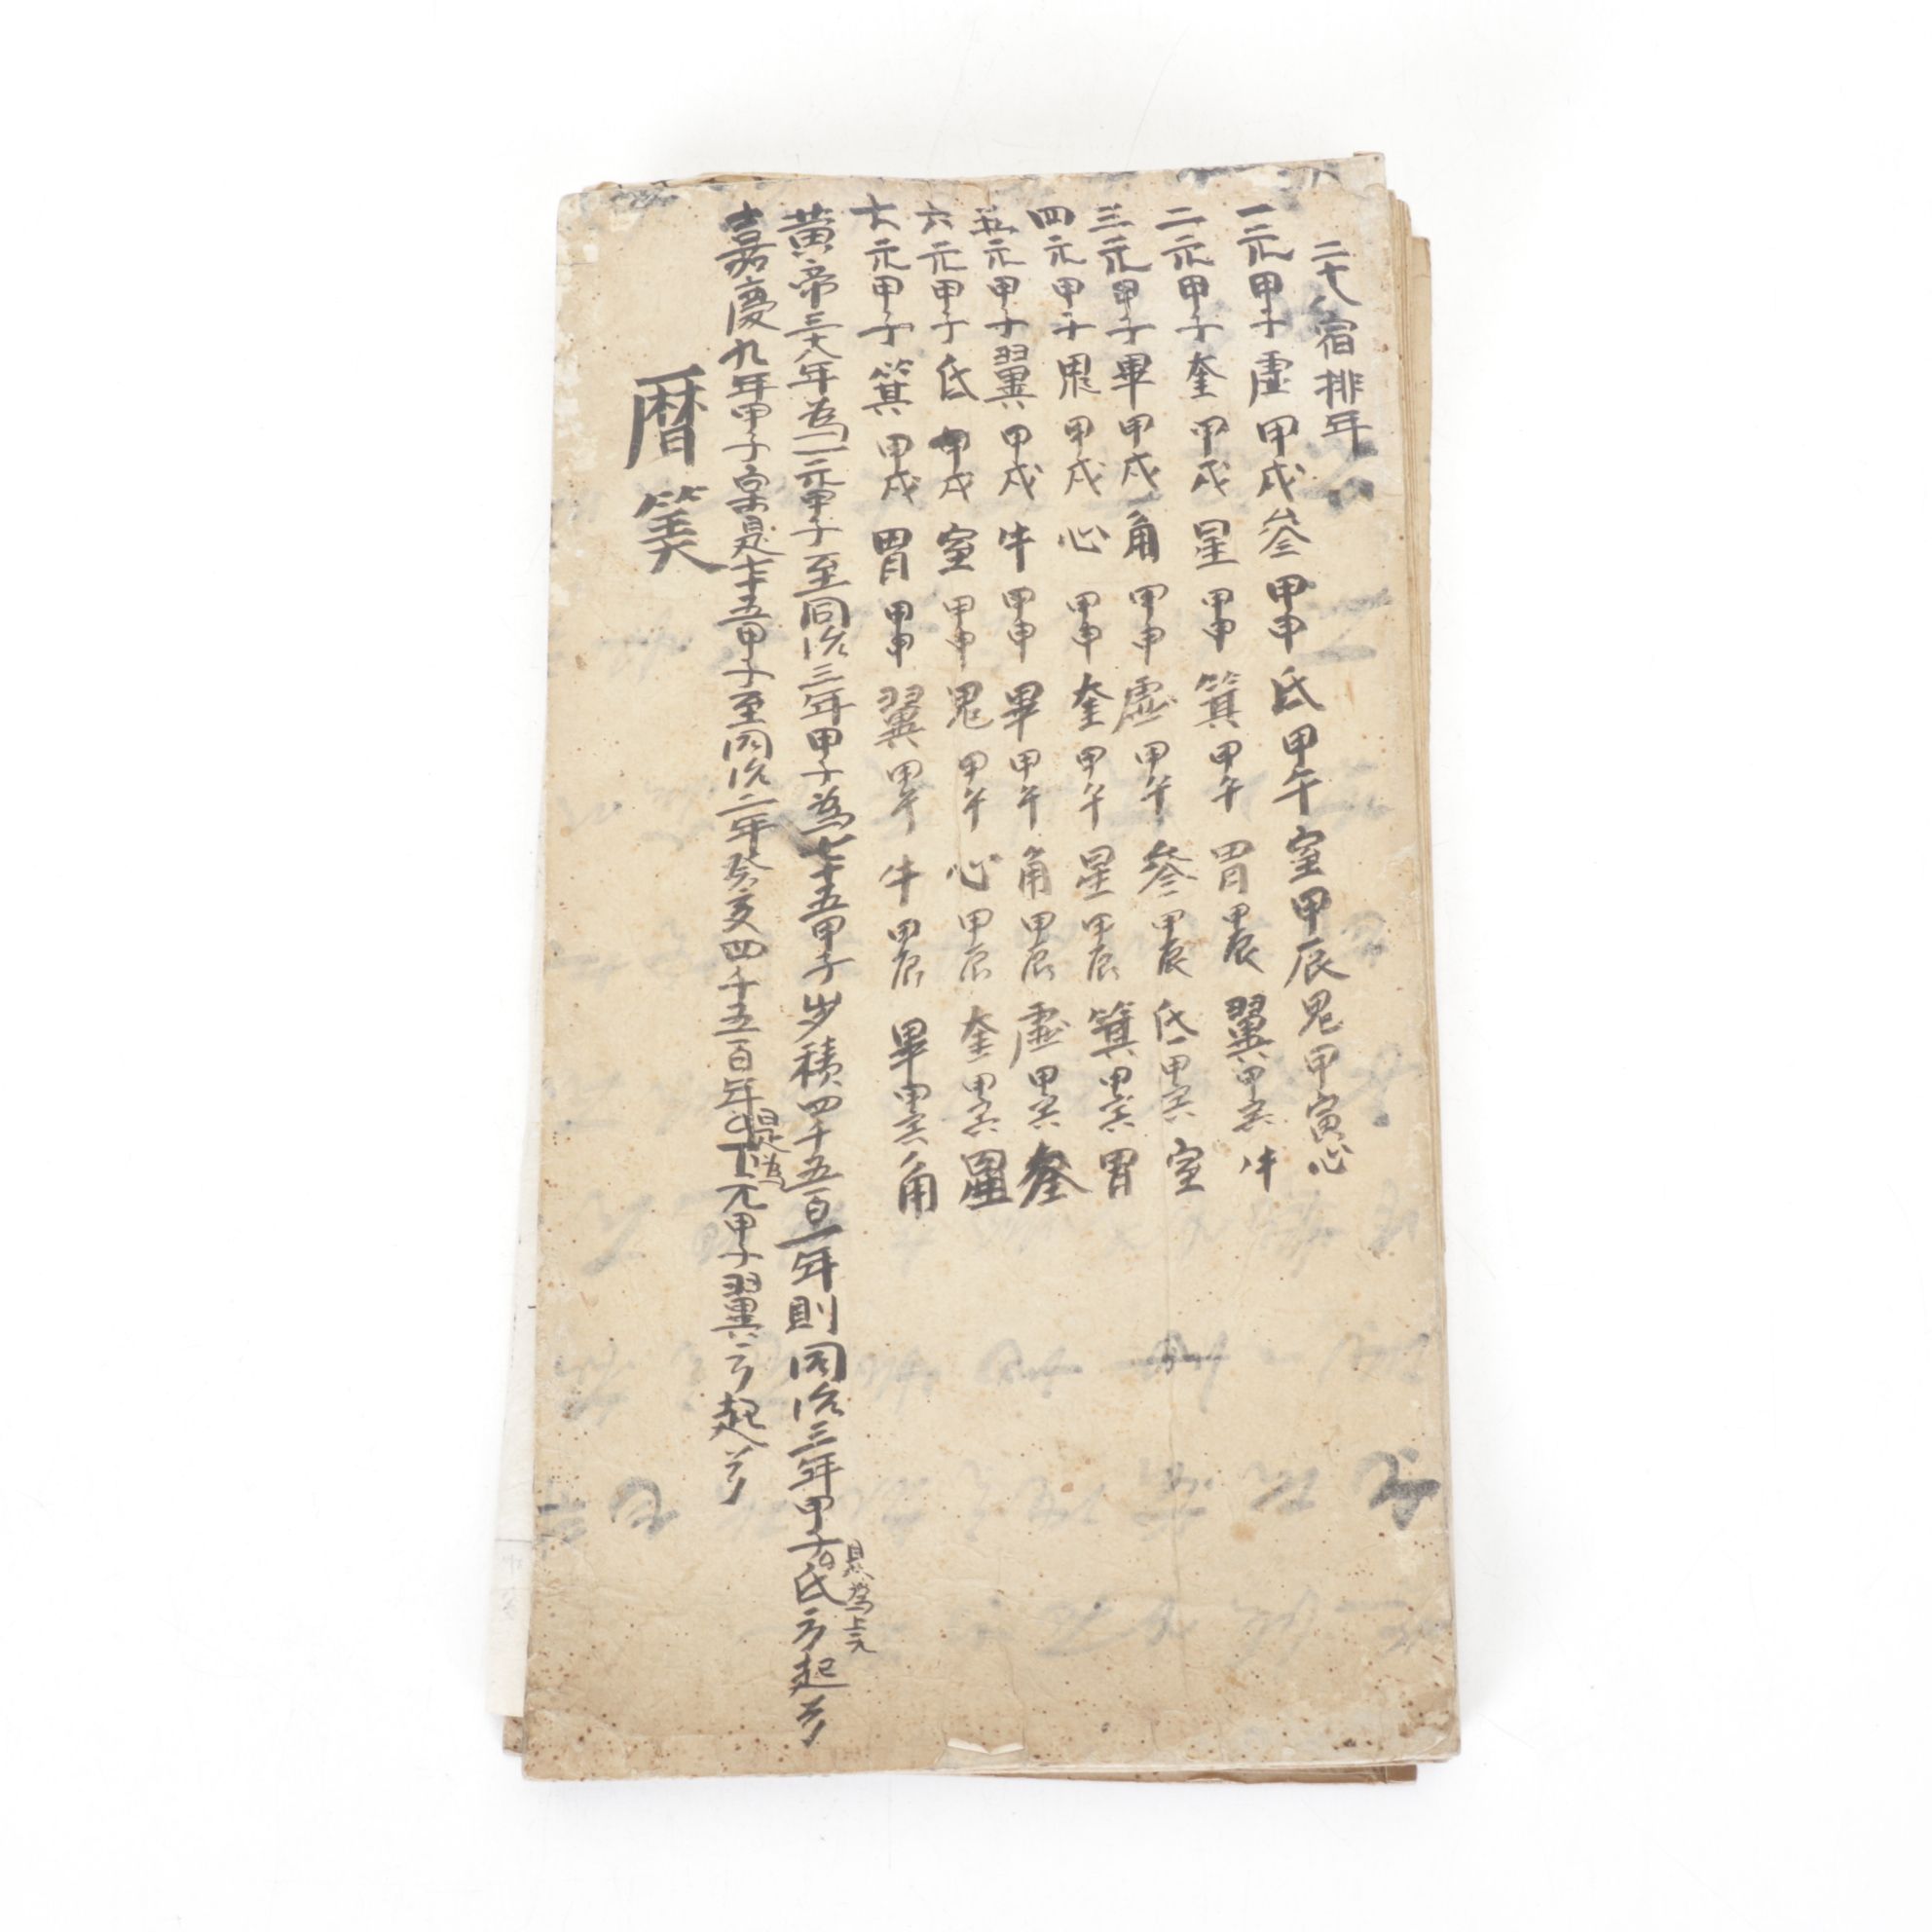 二十八宿排年
一元甲子虛甲戌參甲申氐甲午室甲辰鬼甲寅心
二元甲子奎甲戌星甲申箕甲午胃甲辰翼甲寅牛
三元甲子畢甲戌角甲申虛甲午參甲辰氐甲寅室
四元甲子鬼甲戌心甲申奎甲午星甲辰箕甲寅胃
五元甲子翼甲戌牛甲申畢甲午角甲辰虛甲寅參
六元甲子氐甲戌室甲申鬼甲午心甲辰奎甲寅星
七元甲子箕甲戌胃甲申翼甲午牛甲辰畢甲寅角
黃帝三十八年為一元甲子至同治三年甲子為七十五甲子歲積四千五百一年則同治三年甲子氐方起
是為上元
嘉慶九年甲子是七十五甲子至同治二年癸亥四千五百年下元甲子翼方起
是為
曆筭